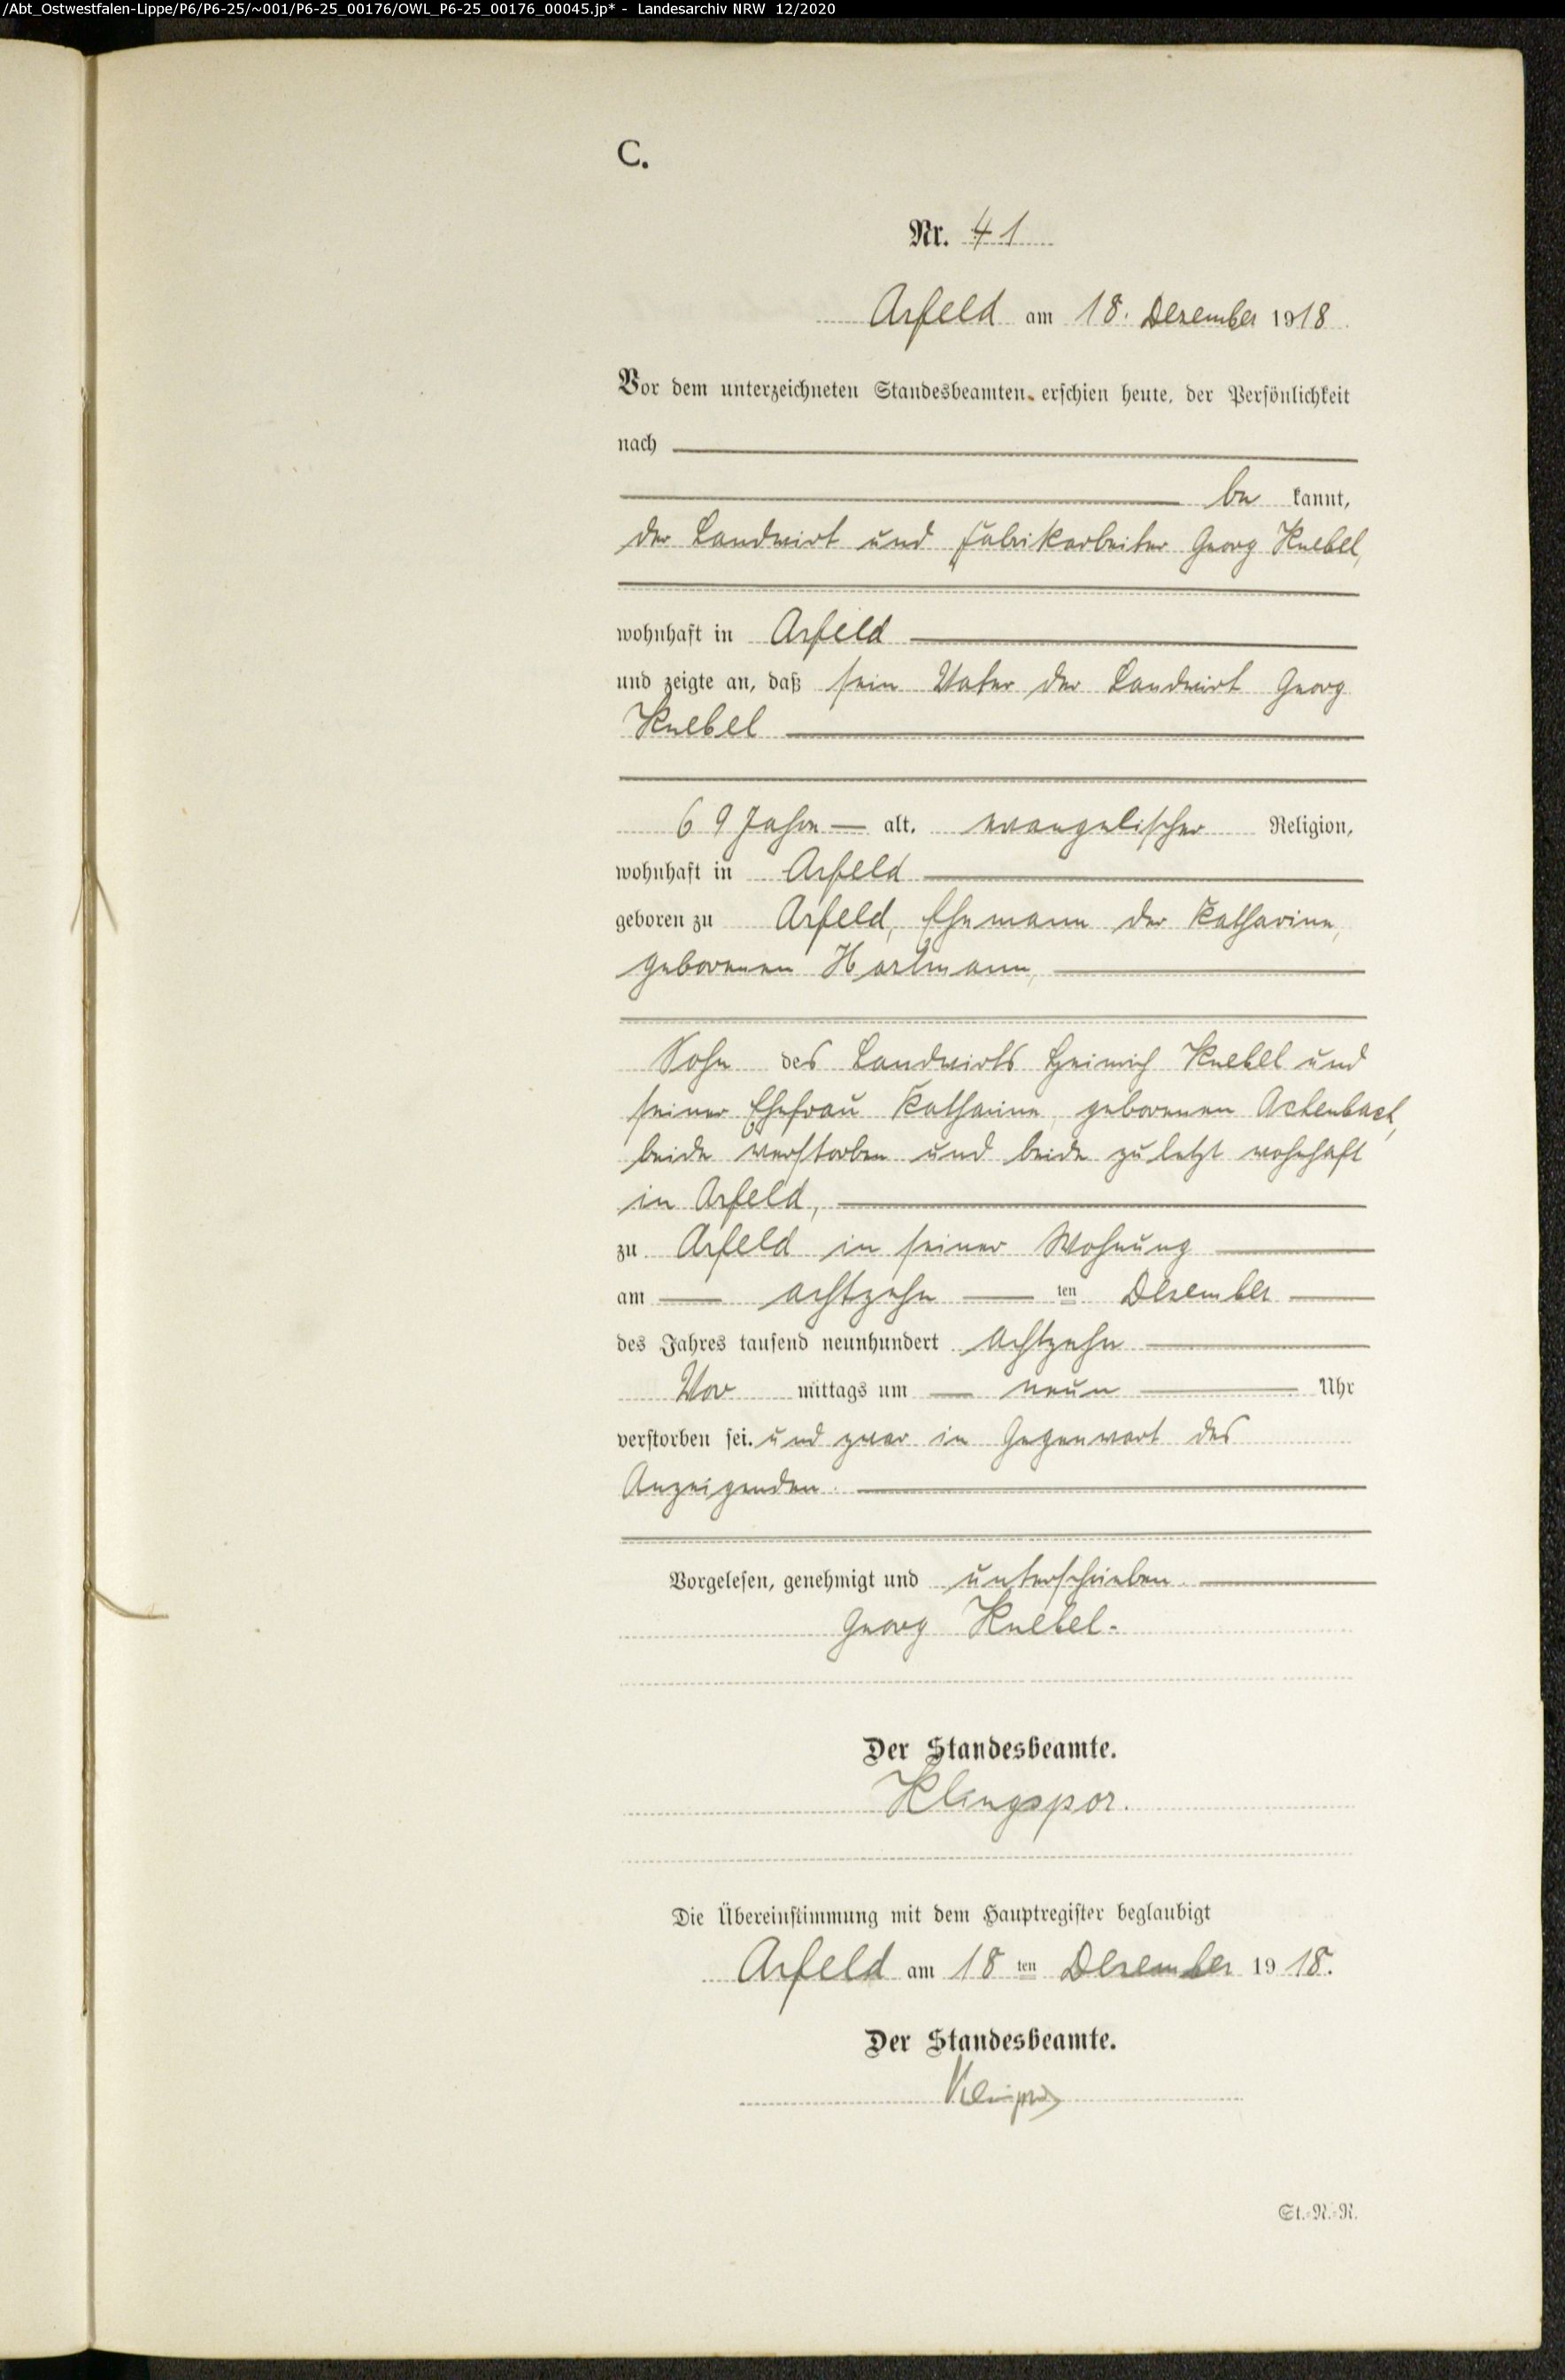 /Abt_Ostwestfalen-Lippe/P6/P6-25/~001/P6-25_00176/OWL_P6-25_00176_00045.jp* - Landesarchiv NRW 12/2020
C.
Nr. 41
Arfeld am 18. Dezember 1918.
Vor dem unterzeichneten Standesbeamten erschien heute, der Persönlichkeit
nach
be kannt,
der Landwirt und Fabrikarbeiter Georg Knebel,
wohnhaft in Arfeld
und zeigte an, daß sein Vater der Landwirt Georg
Knebel
69 Jahre alt, evangelischer Religion,
wohnhaft in Arfeld
geboren zu Arfeld, Ehemann der Katharine,
geborenen Hartmann,
Sohn des Landwirts Heinrich Knebel und
seiner Ehefrau Katharine, geborenen Achenbach,
beide verstorben und beide zuletzt wohnhaft
in Arfeld,
zu Arfeld in seiner Wohnung
am achtzehn ten Dezember
des Jahres tausend neunhundert achtzehn
Vor mittags um neun Uhr
verstorben sei. und zwar in Gegenwart des
Anzeigenden.
Vorgelesen, genehmigt und unterschrieben.
Georg Knebel.
Der Standesbeamte.
Klingspor.
Die Übereinstimmung mit dem Hauptregister beglaubigt
Arfeld am 18 ten Dezember 1918.
Der Standesbeamte.
St.-R.-R.